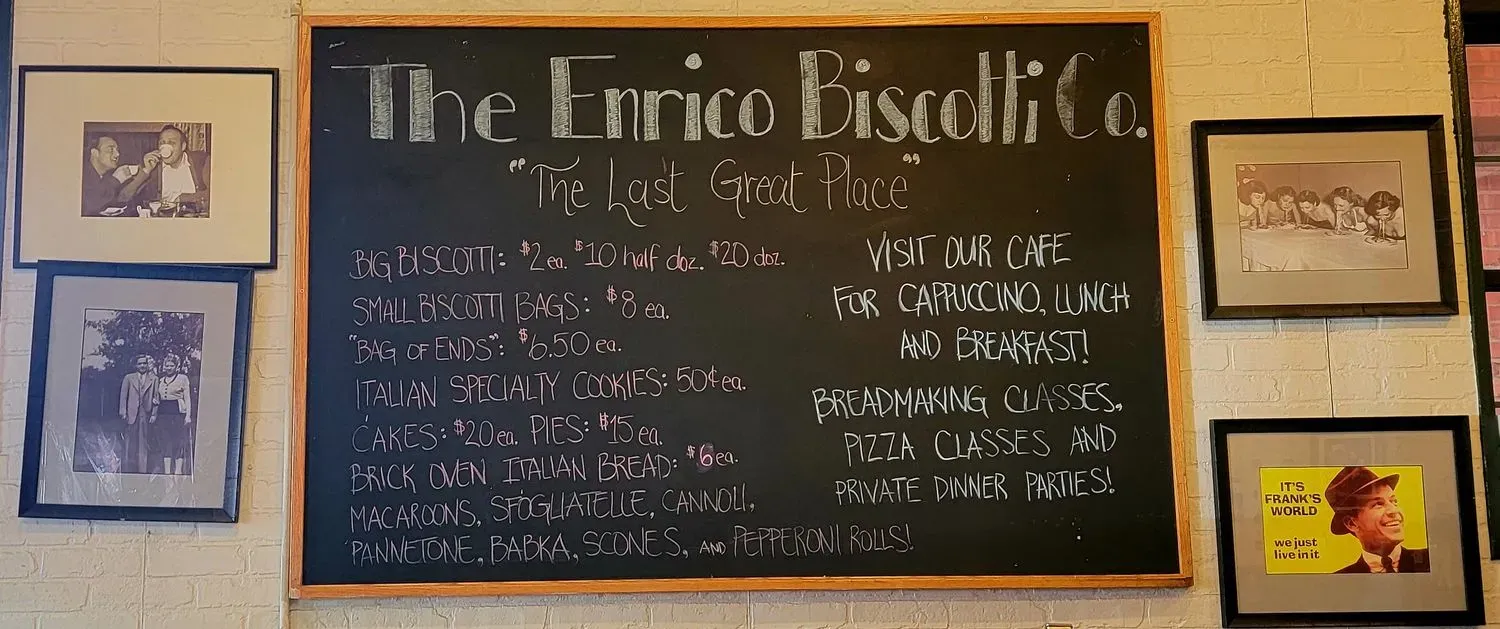 The Enrico Biscotti Co.
"The Last Great Place"
BIG BISCOTTI: $2 ea. $10 half doz. $20 doz.
SMALL BISCOTTI BAGS: $8 ea.
"BAG OF ENDS": $6.50 ea.
ITALIAN SPECIALTY COOKIES: 50¢ ea.
CAKES: $20 ea. PIES: $15 ea.
BRICK OVEN ITALIAN BREAD: $6 ea.
MACAROONS, SFOGLIATELLE, CANNOLI,
PANNETONE, BABKA, SCONES, AND PEPPERONI ROLLS!
VISIT OUR CAFE
FOR CAPPUCCINO, LUNCH
AND BREAKFAST!
BREADMAKING CLASSES,
PIZZA CLASSES AND
PRIVATE DINNER PARTIES!
IT'S
FRANK'S
WORLD
we just
live in it